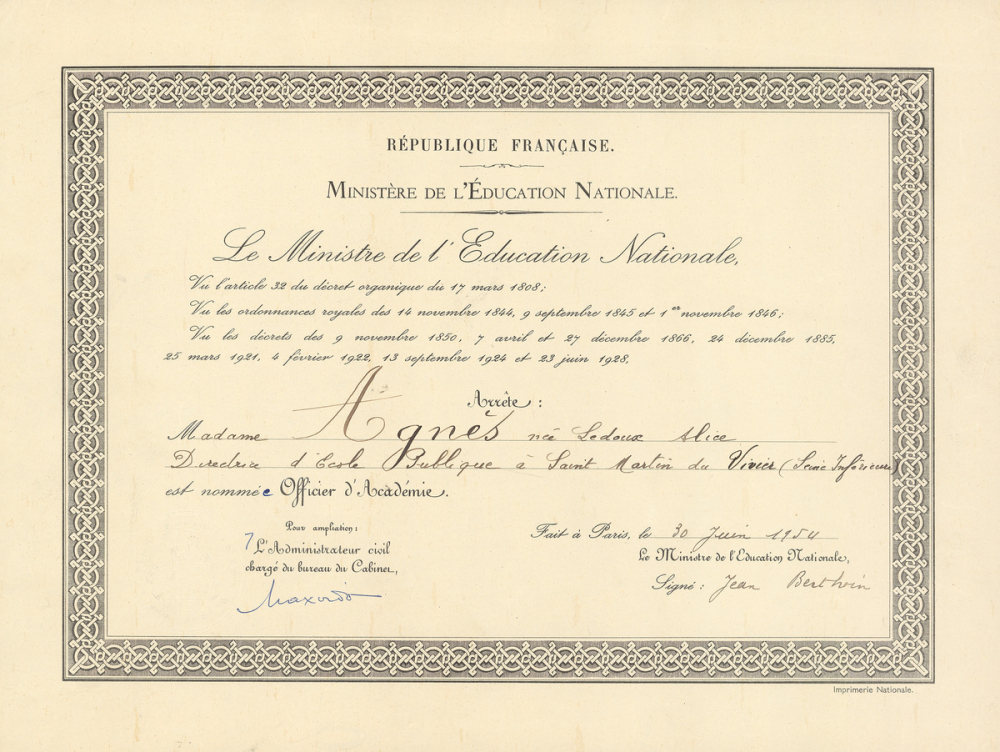 RÉPUBLIQUE FRANÇAISE.
MINISTÈRE DE L'ÉDUCATION NATIONALE.
Le Ministre de l'Education Nationale,
Vu l'article 32 du décret organique du 17 mars 1808;
Vu les ordonnances royales des 14 novembre 1844, 9 septembre 1845 et 1er novembre 1846;
Vu les décrets des 9 novembre 1850, 7 avril et 27 décembre 1866, 24 décembre 1885,
25 mars 1921, 4 février 1922, 13 septembre 1924 et 23 juin 1928,
Arrête :
Madame Agnès née Ledoux Alice
Directrice d'Ecole Publique à Saint Martin du Vivier (Seine Inférieure)
est nommée Officier d'Académie.
Pour ampliation:
L'Administrateur civil
chargé du bureau du Cabinet,
Fait à Paris, le 30 Juin 1954
Le Ministre de l'Education Nationale,
Signé : Jean Berthoin
Imprimerie Nationale.